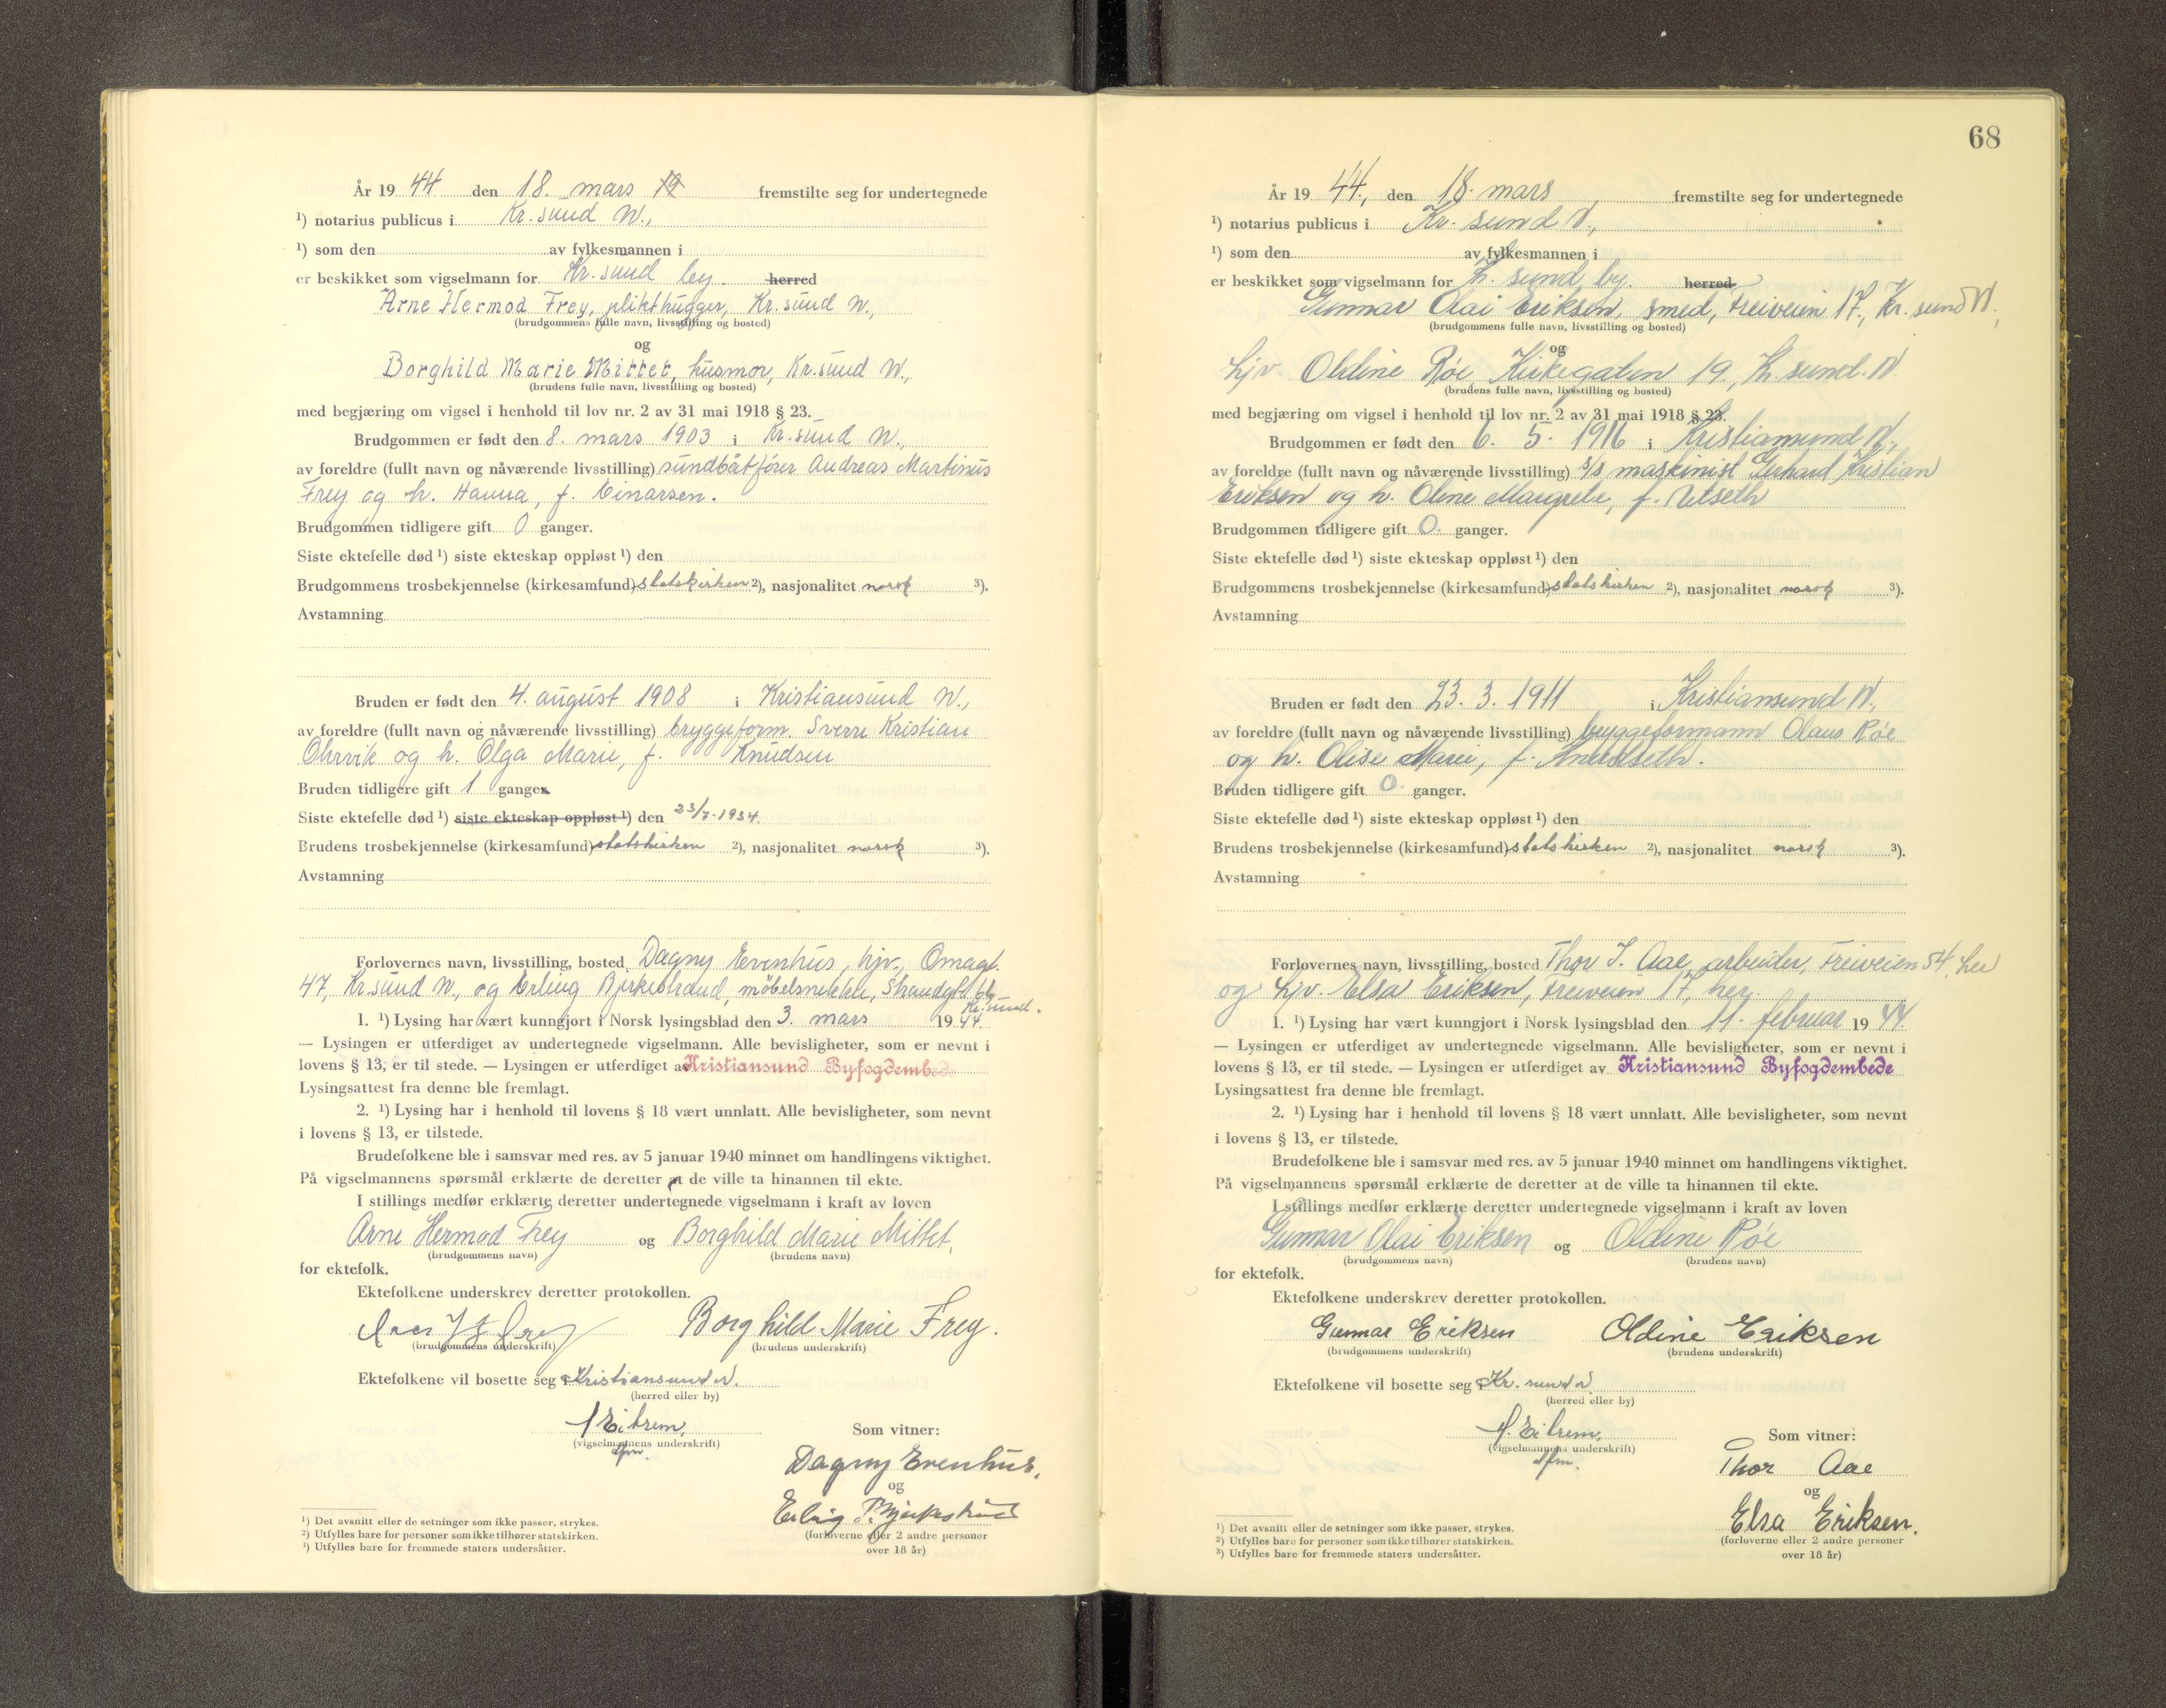 År 19 44 den 18. mars 19 fremstilte seg for undertegnede
¹) notarius publicus i Kr. sund N.,
¹) som den av fylkesmannen i
er beskikket som vigselmann for Kr. sund by. herred
Arne Hermod Frey, plikthugger, Kr. sund N.,
(brudgommens fulle navn, livsstilling og bosted)
og
Borghild Marie Mittet, husmor, Kr. sund N.,
(brudens fulle navn, livsstilling og bosted)
med begjæring om vigsel i henhold til lov nr. 2 av 31 mai 1918 § 23.
Brudgommen er født den 8. mars 1903 i Kr. sund N.,
av foreldre (fullt navn og nåværende livsstilling) sundbåtfører Andreas Martinus
Frey og h. Hanna, f. Einarsen.
Brudgommen tidligere gift 0 ganger.
Siste ektefelle død ¹) siste ekteskap oppløst ¹) den
Brudgommens trosbekjennelse (kirkesamfund) statskirken ²), nasjonalitet norsk ³).
Avstamning
Bruden er født den 4. august 1908 i Kristiansund N.,
av foreldre (fullt navn og nåværende livsstilling) bryggeform. Sverre Kristian
Ohrvik og h. Olga Marie, f. Knudsen
Bruden tidligere gift 1 ganger
Siste ektefelle død ¹) siste ekteskap oppløst ¹) den 23/7-1934.
Brudens trosbekjennelse (kirkesamfund) statskirken ²), nasjonalitet norsk ³).
Avstamning
Forlovernes navn, livsstilling, bosted Dagny Evenhus, hjv., Omagt.
47, Kr. sund N., og Erling Bjerkestrand, møbelsnekker, Strandgt.
Kr. sund.
1. ¹) Lysing har vært kunngjort i Norsk lysingsblad den 3. mars 19 44.
— Lysingen er utferdiget av undertegnede vigselmann. Alle bevisligheter, som er nevnt i
lovens § 13, er til stede. — Lysingen er utferdiget av Kristiansund Byfogdembede
Lysingsattest fra denne ble fremlagt.
2. ¹) Lysing har i henhold til lovens § 18 vært unnlatt. Alle bevisligheter, som nevnt
i lovens § 13, er tilstede.
Brudefolkene ble i samsvar med res. av 5 januar 1940 minnet om handlingens viktighet.
På vigselmannens spørsmål erklærte de deretter at de ville ta hinannen til ekte.
I stillings medfør erklærte deretter undertegnede vigselmann i kraft av loven
Arne Hermod Frey og Borghild Marie Mittet,
(brudgommens navn) (brudens navn)
for ektefolk.
Ektefolkene underskrev deretter protokollen.
Frey Borghild Marie Frey.
(brudgommens underskrift) (brudens underskrift)
Ektefolkene vil bosette seg i Kristiansund N.
(herred eller by)
Eibrem,
(vigselmannens underskrift)
dfm.
Som vitner:
Dagny Evenhus,
og
Erling Bjerkestrand
(forloverne eller 2 andre personer
over 18 år)
¹) Det avsnitt eller de setninger som ikke passer, strykes.
²) Utfylles bare for personer som ikke tilhører statskirken.
³) Utfylles bare for fremmede staters undersåtter.
68
År 19 44, den 18. mars, fremstilte seg for undertegnede
¹) notarius publicus i Kr. sund N.,
¹) som den av fylkesmannen i
er beskikket som vigselmann for Kr. sund by. herred
Gunnar Olai Eriksen, smed, Freiveien 17, Kr. sund N.,
(brudgommens fulle navn, livsstilling og bosted)
og
hjv. Oldine Røe, Kirkegaten 19, Kr. sund. N
(brudens fulle navn, livsstilling og bosted)
med begjæring om vigsel i henhold til lov nr. 2 av 31 mai 1918 § 23.
Brudgommen er født den 6. 5. 1916 i Kristiansund N.,
av foreldre (fullt navn og nåværende livsstilling) s/s maskinist Gerhard Kristian
Eriksen og h. Oline Margrete, f. Utseth
Brudgommen tidligere gift 0. ganger.
Siste ektefelle død ¹) siste ekteskap oppløst ¹) den
Brudgommens trosbekjennelse (kirkesamfund) statskirken ²), nasjonalitet norsk ³).
Avstamning
Bruden er født den 23. 3. 1911 i Kristiansund N.,
av foreldre (fullt navn og nåværende livsstilling) bryggeformann Olaus Røe
og h. Olise Marie, f.
Bruden tidligere gift 0. ganger.
Siste ektefelle død ¹) siste ekteskap oppløst ¹) den
Brudens trosbekjennelse (kirkesamfund) statskirken ²), nasjonalitet norsk ³).
Avstamning
Forlovernes navn, livsstilling, bosted Thor J. Aae, arbeider, Freiveien 54, her
og hjv. Elsa Eriksen, Freiveien 17, her.
1. ¹) Lysing har vært kunngjort i Norsk lysingsblad den 11. februar 19 44.
— Lysingen er utferdiget av undertegnede vigselmann. Alle bevisligheter, som er nevnt i
lovens § 13, er til stede. — Lysingen er utferdiget av Kristiansund Byfogdembede
Lysingsattest fra denne ble fremlagt.
2. ¹) Lysing har i henhold til lovens § 18 vært unnlatt. Alle bevisligheter, som nevnt
i lovens § 13, er tilstede.
Brudefolkene ble i samsvar med res. av 5 januar 1940 minnet om handlingens viktighet.
På vigselmannens spørsmål erklærte de deretter at de ville ta hinannen til ekte.
I stillings medfør erklærte deretter undertegnede vigselmann i kraft av loven
Gunnar Olai Eriksen og Oldine Røe
(brudgommens navn) (brudens navn)
for ektefolk.
Ektefolkene underskrev deretter protokollen.
Gunnar Eriksen Oldine Eriksen
(brudgommens underskrift) (brudens underskrift)
Ektefolkene vil bosette seg i Kr. sund N
(herred eller by)
Eibrem,
(vigselmannens underskrift)
dfm.
Som vitner:
Thor Aae
og
Elsa Eriksen.
(forloverne eller 2 andre personer
over 18 år)
¹) Det avsnitt eller de setninger som ikke passer, strykes.
²) Utfylles bare for personer som ikke tilhører statskirken.
³) Utfylles bare for fremmede staters undersåtter.